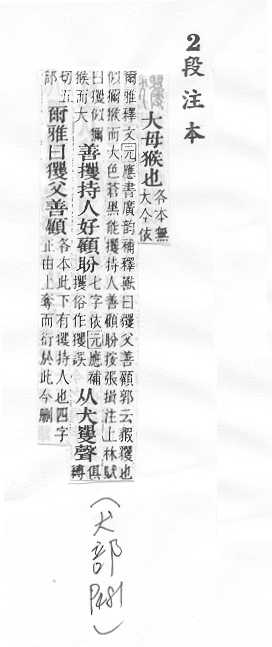 2 段注本
大母猴也 各本無
大今依
爾雅釋文元應書廣韵補釋獸曰玃父善顧郭云猳玃也
似獼猴而大色蒼黑能攫持人善顧盼按張揖注上林賦
曰玃似獼
猴而大
善攫持人好顧盼
七字依元應補
攫俗作玃誤
从犬矍聲
俱
縛
切五
部
爾雅曰玃父善顧
各本此下有攫持人也四字
止由上奪而衍於此今刪
(犬部 P481)